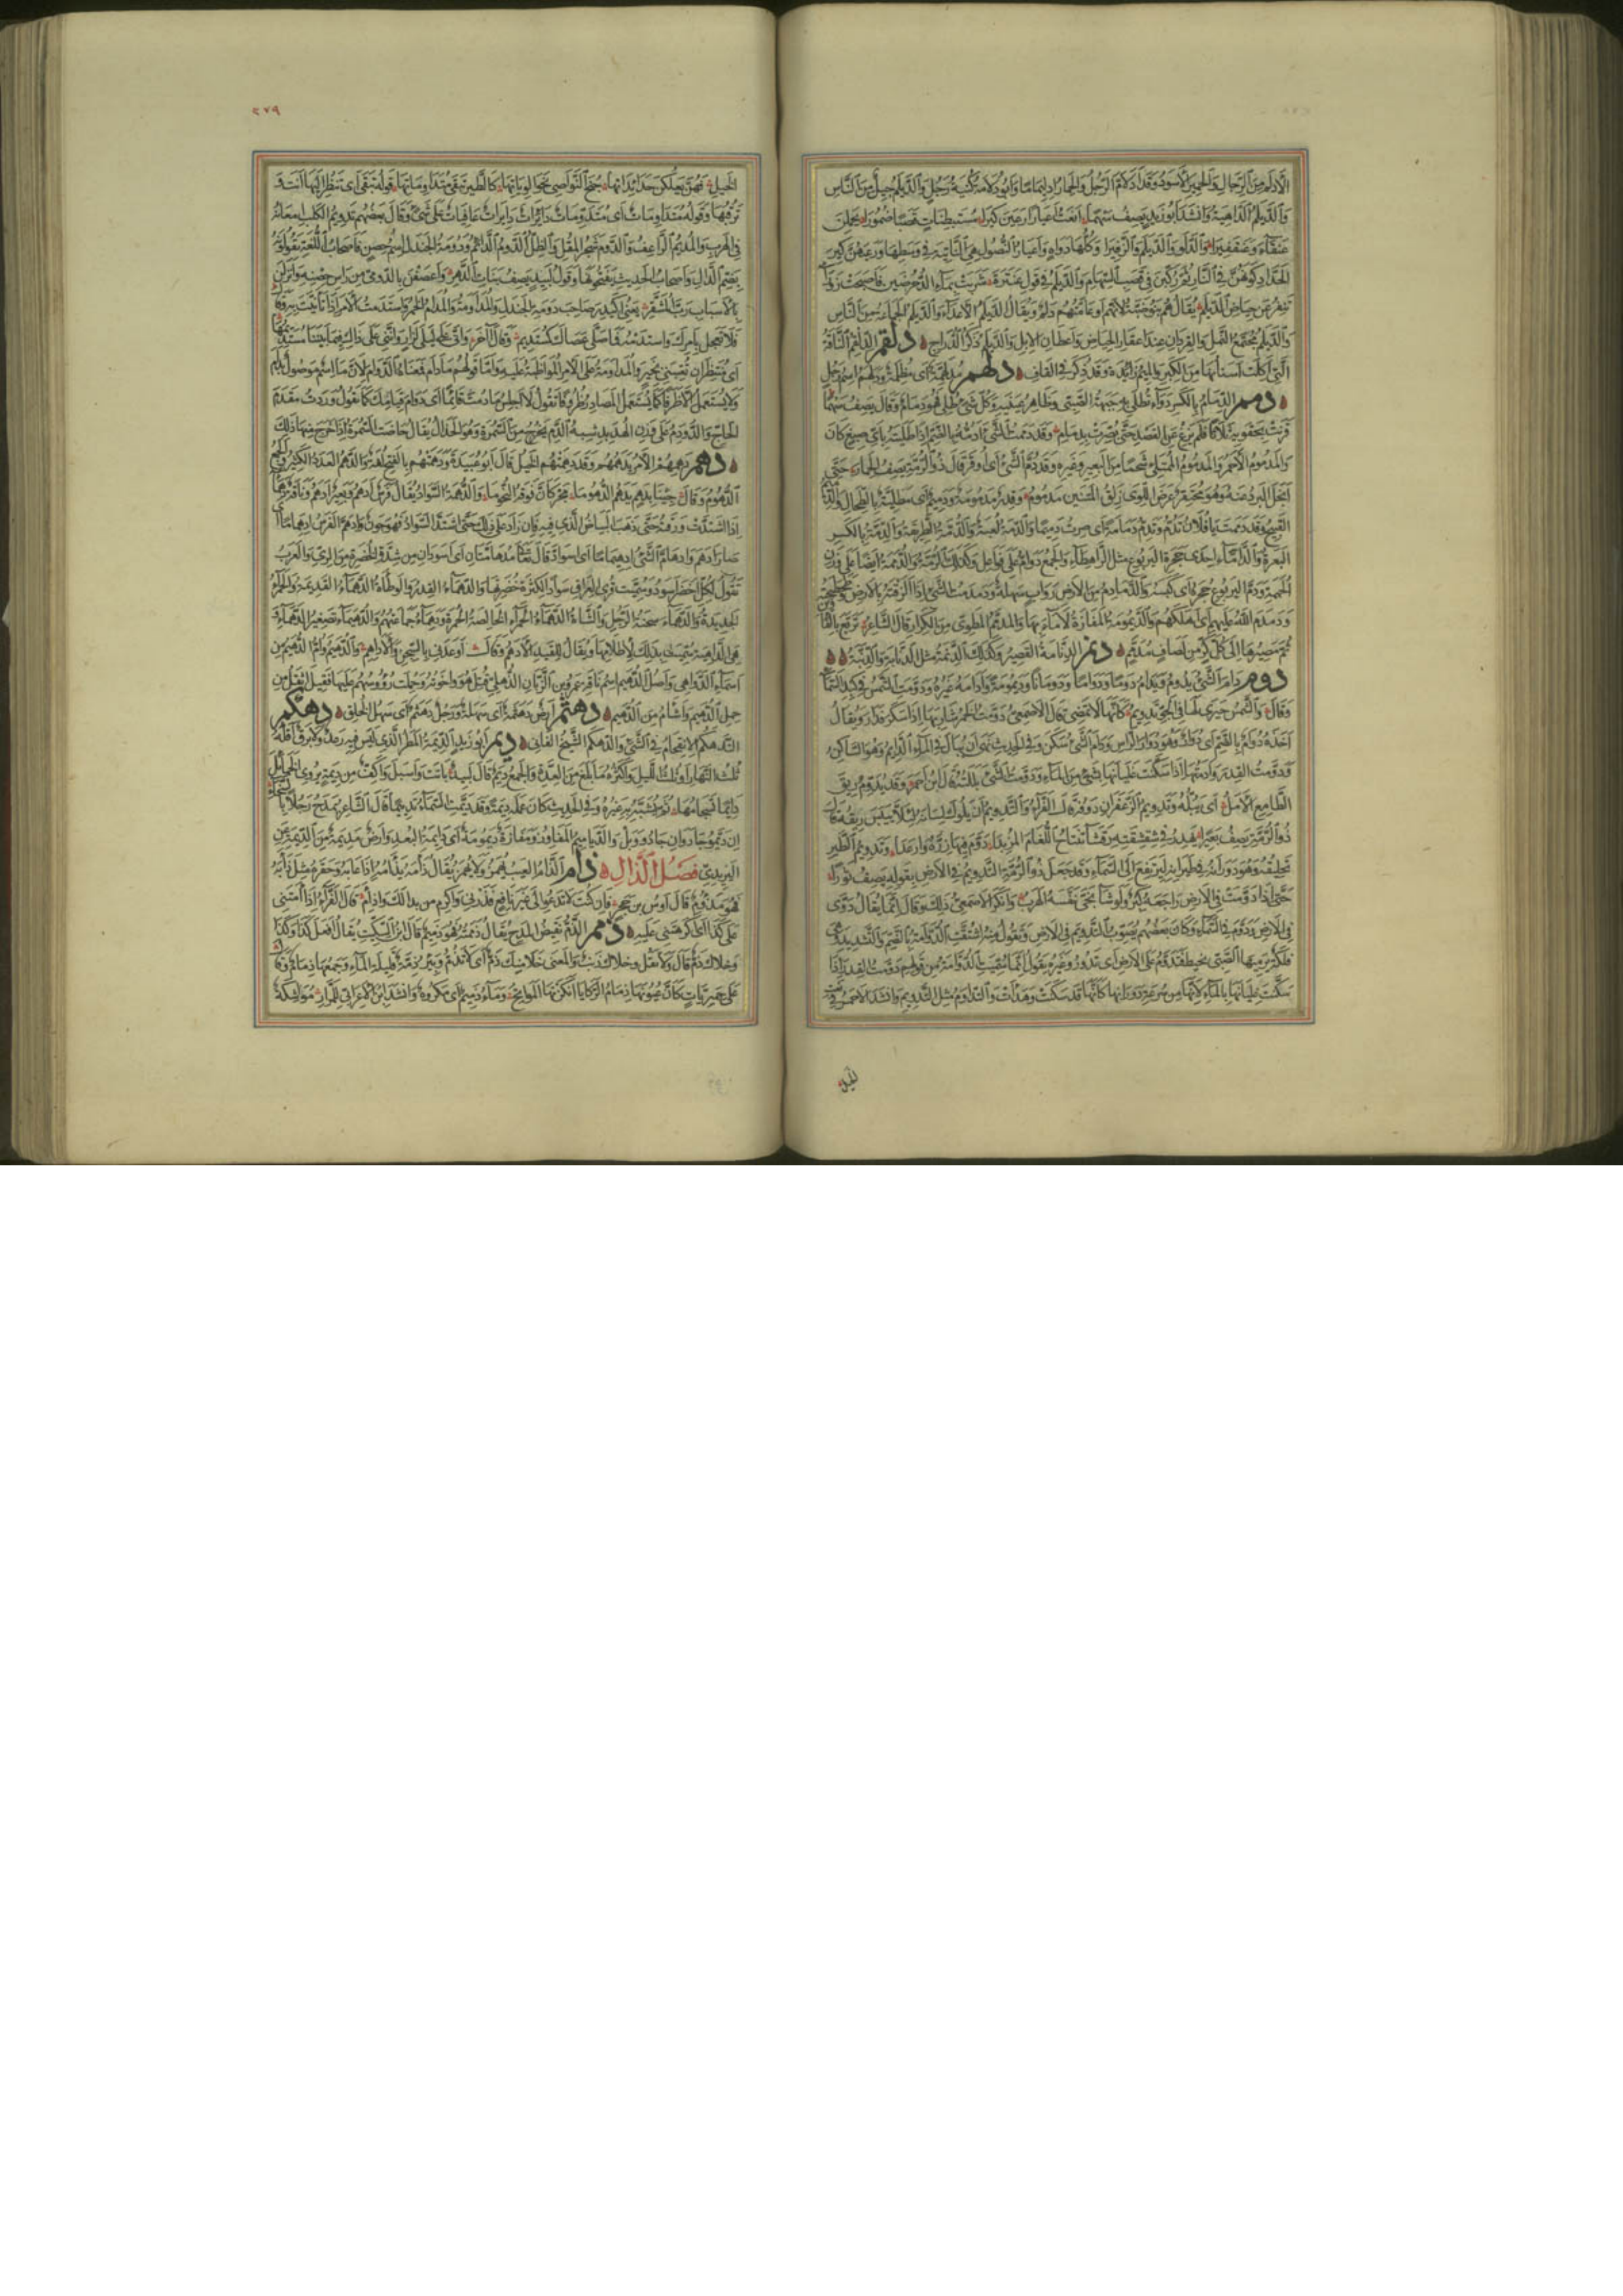 الأدلم من الرجال والحمير الأسود وقد ادلام الرجل والحمار ادليماما وابو دلامة كنية رجل والديلم جيل من الناس
والديلم الداهية وانشد ابو زيد يصف سهما انعت اعيارا رعين كيرا مستبطنات قصبا ضمورا يحملن
عنقاء وعنقفيرا والدلو والديلم والزفيرا وكلها دواه واعيار النصول هي الناتئة في وسطها ورعيهن كير
الحداد كونهن في النار ثم ركبن في قصب السهام والديلم في قول عنترة شربت بماء الدحرضين فاصبحت زوراء
تنفر عن حياض الديلم يقال هم بنو ضبة لانهم او عامتهم دلم ويقال الديلم الاعداء والديلم الجماعة من الناس
والديلم مجتمع النمل والقردان عند اعقار الحياض واعطان الابل والديلم ذكر الدراج دلقم الدلقم الناقة
التي اكلت اسنانها من الكبر والميم زائدة وقد ذكر في القاف دلهم مدلهمة اي مظلمة ودلهم اسم رجل
دمم الدمام بالكسر دواء تطلى به جبهة الصبي وظاهر عينيه وكل شيء طلي به فهو دمام وقال يصف سهما
وقد دممت الشيء ادمه بالضم اذا طليته باي صبغ كان
والمدموم الاحمر والمدموم الممتلئ شحما من البعير وغيره وقد دم الشيء اي اوقر قال ذو الرمة يصف الحمار حتى
انجلى البرد عنه وهو محتقر عرض اللوى زلق المتنين مدموم وقدر مدمومة ودميم اي مطلية بالطحال والدميم
القبيح وقد دممت يا فلان تدم وتدم دمامة اي صرت دميما والدمة لعبة والدمة الطريقة والدمة بالكسر
البعرة والداماء احدى جحرة اليربوع مثل الراهطاء والجمع دوام على فواعل وكذلك الدمة والدممة ايضا على وزن
الحممة ودم اليربوع جحره اي كبسه والديماديم من الارض رواب سهلة ودمدمت الشيء اذا الزقته بالارض وطحطحته
ودمدم الله عليهم اي اهلكهم والديمومة المفازة لا ماء بها والمدمم المطوي من الكرار قال الشاعر تربع بالفأوين
ثم مصيرها الى كل كر من لصاف مدمم دنم الدنامة القصير وكذلك الدنمة مثل الدنابة والدنبة
دوم دام الشيء يدوم ويدام دوما ودواما وديمومة وادامه غيره ودومت الشمس في كبد السماء
وقال والشمس حيرى لها في الجو تدويم كانها لا تمضي قال الاصمعي دومت الخمر شاربها اذا سكر فدار ويقال
اخذه دوام بالضم اي دوار وهو دوار الراس ودام الشيء سكن وفي الحديث نهى ان يبال في الماء الدائم وهو الساكن
ودومت القدر وادمتها اذا سكنت غليانها بشيء من الماء ودومت الشيء بللته قال ابن احمر وقد يدوم ريق
الطامع الامل اي يبله وتدويم الزعفران دوفه قال الفراء والتدويم ان يلوك لسانه لئلا ييبس ريقه قال
ذو الرمة يصف بعيرا يهدر في شقشقته رقشاء تنتاخ اللغام المزبدا دوم فيها رزه وارعدا وتدويم الطير
تحليقه وهو دورانه في طيرانه ليرتفع الى السماء وقد جعل ذو الرمة التدويم في الارض بقوله يصف ثورا
حتى اذا دومت في الارض راجعه كبر ولو شاء نجى نفسه الهرب وانكر الاصمعي ذلك وقال انما يقال دوى
في الارض ودوم في السماء وكان بعضهم يصوب التدويم في الارض ويقول منه اشتقت الدوامة بالضم والتشديد وهي
فلكة يرميها الصبي بخيط فتدوم على الارض اي تدور وغيره يقول انما سميت الدوامة من قولهم دومت القدر اذا
سكنت غليانها بالماء لانها من سرعة دورانها كانها قد سكنت وهدأت والتدوام مثل التدويم وانشد الاحمر في نعت
الخيل
٢٧٩
الخيل فهن يعلكن حدائداتها جنح النواصي نحو الوياتها كالطير تبقي متداوماتها قوله تبقي اي تنظر اليها انت و
ترقبها وقوله متداومات اي متدومات دائرات عافيات على شيء وقال بعضهم تدويم الكلب امعانه
في الهرب والمديم الراعف والدوم شجر المقل والظل الدوم الدائم ودومة الجندل اسم حصن فاصحاب اللغة يقولونه
بضم الدال واصحاب الحديث يفتحونها وقول لبيد يصف بنات الدهر واعصفن بالدومي من راس حصنه وانزلن
بالاسباب رب المشقر يعني اكيدر صاحب دومة الجندل والمدام والمدامة الخمر واستدمت الامر اذا تانيت به وقال
فلا تعجل بامرك واستدمه فما صلى عصاك كمستديم وقال آخر واني على ليلى لزار وانني على ذاك فيما بيننا مستديمها
اي منتظر ان تعتبني بخير والمداومة على الامر المواظبة عليه واما قولهم ما دام فمعناه الدوام لان ما اسم موصول بدام
ولا يستعمل الا ظرفا كما تستعمل المصادر ظروفا تقول لا اجلس ما دمت قائما اي دوام قيامك كما تقول وردت مقدم
الحاج والدودم على وزن الهدبد شبه الدم يخرج من السمرة وهو الحذال يقال حاضت السمرة اذا خرج منها ذلك
دهم دهمهم الامر يدهمهم وقد دهمتهم الخيل قال ابو عبيدة ودهمتهم بالفتح لغة والدهم العدد الكثير والجمع
الدهوم وقال جئنا بدهم يدهم الدهوما مجر كان فوقه النجوما والدهمة السواد يقال فرس ادهم وبعير ادهم وناقة دهماء
اذا اشتدت ورقته حتى ذهب البياض الذي فيه فان زاد على ذلك حتى اشتد السواد فهو جون وادهم الفرس ادهماما اي
صار ادهم وادهام الشيء ادهيماما اي اسواد قال تعالى مدهامتان اي اسودان من شدة الخضرة من الري والعرب
تقول لكل اخضر اسود وسميت قرى العراق سوادا لكثرة خضرتها والدهماء القدر والوطأة الدهماء القديمة والحمراء
الجديدة والدهماء سحنة الرجل والشاة الدهماء الحمراء الخالصة الحمرة ودهماء الناس جماعتهم والدهيماء تصغير الدهماء و
هي الداهية سميت بذلك لاظلامها ويقال للقيد الادهم وقال اوعدني بالسجن والاداهم والدهيم وام الدهيم من
اسماء الدواهي واصل الدهيم اسم ناقة عمرو بن الزبان الذهلي قتل هو واخوته وحملت رؤوسهم عليها فقيل اثقل من
حمل الدهيم واشام من الدهيم دهثم ارض دهثمة اي سهلة ورجل دهثم اي سهل الخلق دهكم
التدهكم الاقتحام في الشيء والدهكم الشيخ الفاني ديم ابو زيد الديمة المطر الذي ليس فيه رعد ولا برق اقله
ثلث النهار او ثلث الليل واكثره ما بلغ من العدة والجمع ديم قال لبيد باتت واسبل واكف من ديمة يروي الخمائل
دائما تسجامها ثم يشبه به غيره وفي الحديث كان عمله ديمة وقد ديمت السماء تدييما قال الشاعر يمدح رجلا بالسخاء
ان ديموا جاد وان جادوا وبل والدياميم المفاوز ومفازة ديمومة اي دائمة البعد وارض مديمة من الديمة عن
اليزيدي فصل الذال ذام الذام العيب يهمز ولا يهمز يقال ذامه يذامه اذا عابه وحقره مثل ذابه
فهو مذؤوم قال اوس بن حجر فان كنت لا تدعو الى غير نافع فذرني واكرم من بدا لك واذام قال الفراء اذامتني
على كذا اي اكرهتني عليه ذمم الذم نقيض المدح يقال ذممته فهو ذميم قال ابن السكيت يقال افعل كذا وكذا
وخلاك ذم قال ولا تقل وخلاك ذنب والمعنى خلا منك ذم اي لا تذم وبئر ذمة قليلة الماء وجمعها ذمام وقال
على حميريات كان عيونها ذمام الركايا انكزتها المواتح وماء ذميم اي مكروه وانشد ابن الاعرابي للمرار مواشكة